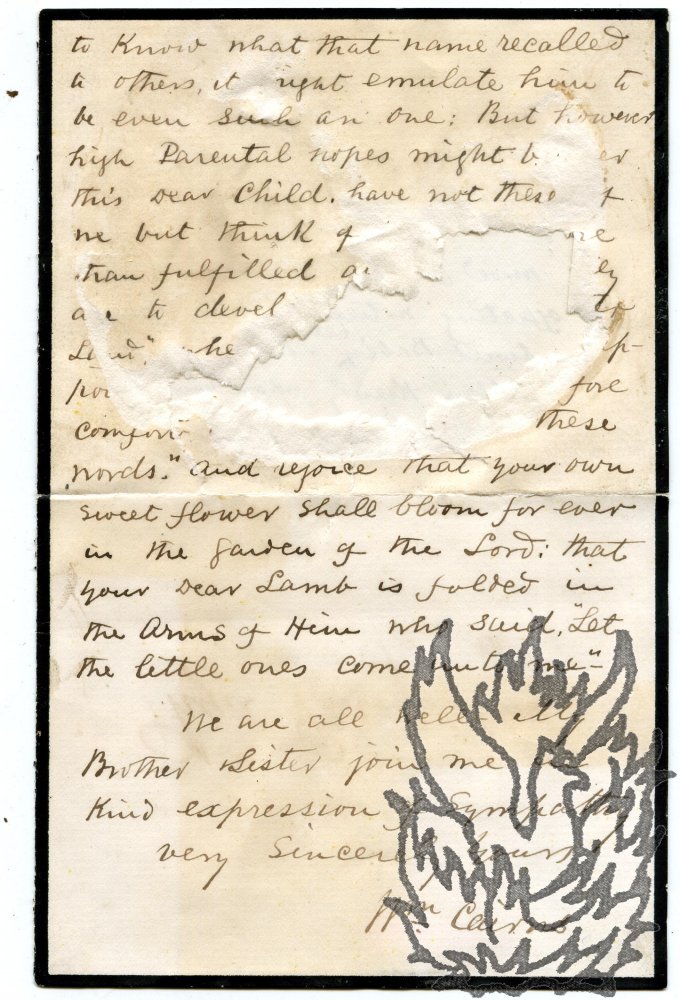 to Know what that name recalled
to others, it might emulate him to
be even such an one: But however
high Parental hopes might b er
this Dear Child. have not these f
we but think of re
than fulfilled ey
a e to devel to
Lord", he p-
por fore
comfort these
words." And rejoice that your own
sweet flower shall bloom for ever
in the Garden of the Lord: that
your Dear Lamb is folded in
the Arms of Him who said, "Let
the little ones come unto me"-
We are all well My
Brother & Sister join me in
Kind expression of Sympathy
very Sincerely yours
Wm. Cairns